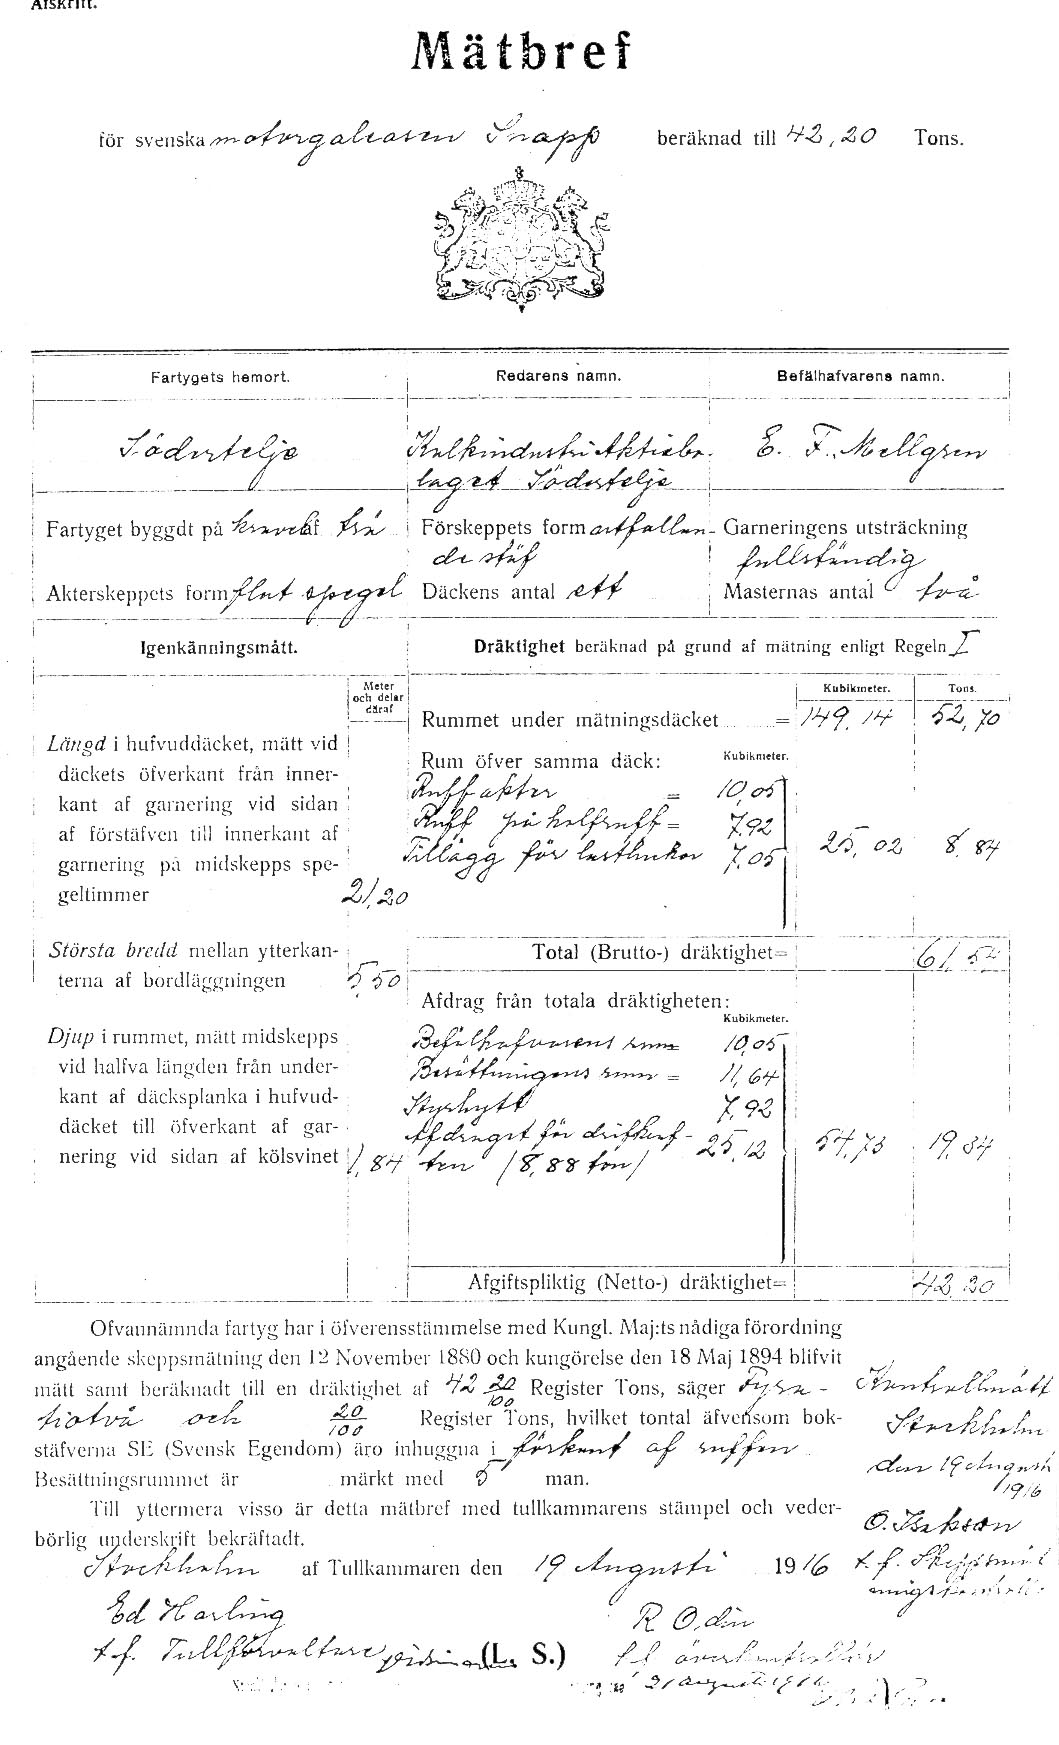 Afskrift.
Mätbref
för svenska motorgaleasen Snapp beräknad till 42,20 Tons.
Fartygets hemort. Redarens namn. Befälhafvarens namn.
Södertelje Kalkindustri Aktiebo- E. F. Mellgren
laget Södertelje
Fartyget byggdt på kravell trä Förskeppets form utfallan- Garneringens utsträckning
de stäf fullständig
Akterskeppets form flat spegel Däckens antal ett Masternas antal två
Igenkänningsmått. Dräktighet beräknad på grund af mätning enligt Regeln I
Meter och delar däraf
Kubikmeter. Tons.
Rummet under mätningsdäcket = 149,14 52,70
Längd i hufvuddäcket, mätt vid
däckets öfverkant från inner-
kant af garnering vid sidan
af förstäfven till innerkant af
garnering på midskepps spe-
geltimmer 21,20
Rum öfver samma däck: Kubikmeter.
Ruff akter = 10,05
Ruff på halfruff = 7,92
Tillägg för lastluckor 7,05 25,02 8,84
Största bredd mellan ytterkan-
terna af bordläggningen 5,50
Total (Brutto-) dräktighet= 61,54
Afdrag från totala dräktigheten:
Kubikmeter.
Djup i rummet, mätt midskepps
vid halfva längden från under-
kant af däcksplanka i hufvud-
däcket till öfverkant af gar-
nering vid sidan af kölsvinet 1,84
Befälhafvarens rum 10,05
Besättningens rum = 11,64
Styrhytt 7,92
Afdraget för drifkraf- 25,12 54,73 19,34
ten (8,88 ton)
Afgiftspliktig (Netto-) dräktighet= 42,20
Ofvannämnda fartyg har i öfverensstämmelse med Kungl. Maj:ts nådiga förordning
angående skeppsmätning den 12 November 1880 och kungörelse den 18 Maj 1894 blifvit
mätt samt beräknadt till en dräktighet af 42 20/100 Register Tons, säger Fyra-
tiotvå och 20/100 Register Tons, hvilket tontal äfvensom bok-
stäfverna SE (Svensk Egendom) äro inhuggna i förkant af ruffen
Besättningsrummet är märkt med 5 man.
Till yttermera visso är detta mätbref med tullkammarens stämpel och veder-
börlig underskrift bekräftadt.
Stockholm af Tullkammaren den 19 Augusti 1916
Kontrollmått
Stockholm
den 19 Augusti
1916
O. Isakson
t. f. Skeppsmät-
ningskontroll.
Ed Harling R Odin
t. f. Tullförvaltare (L. S.) t f överkontrollör
21 augusti 1916